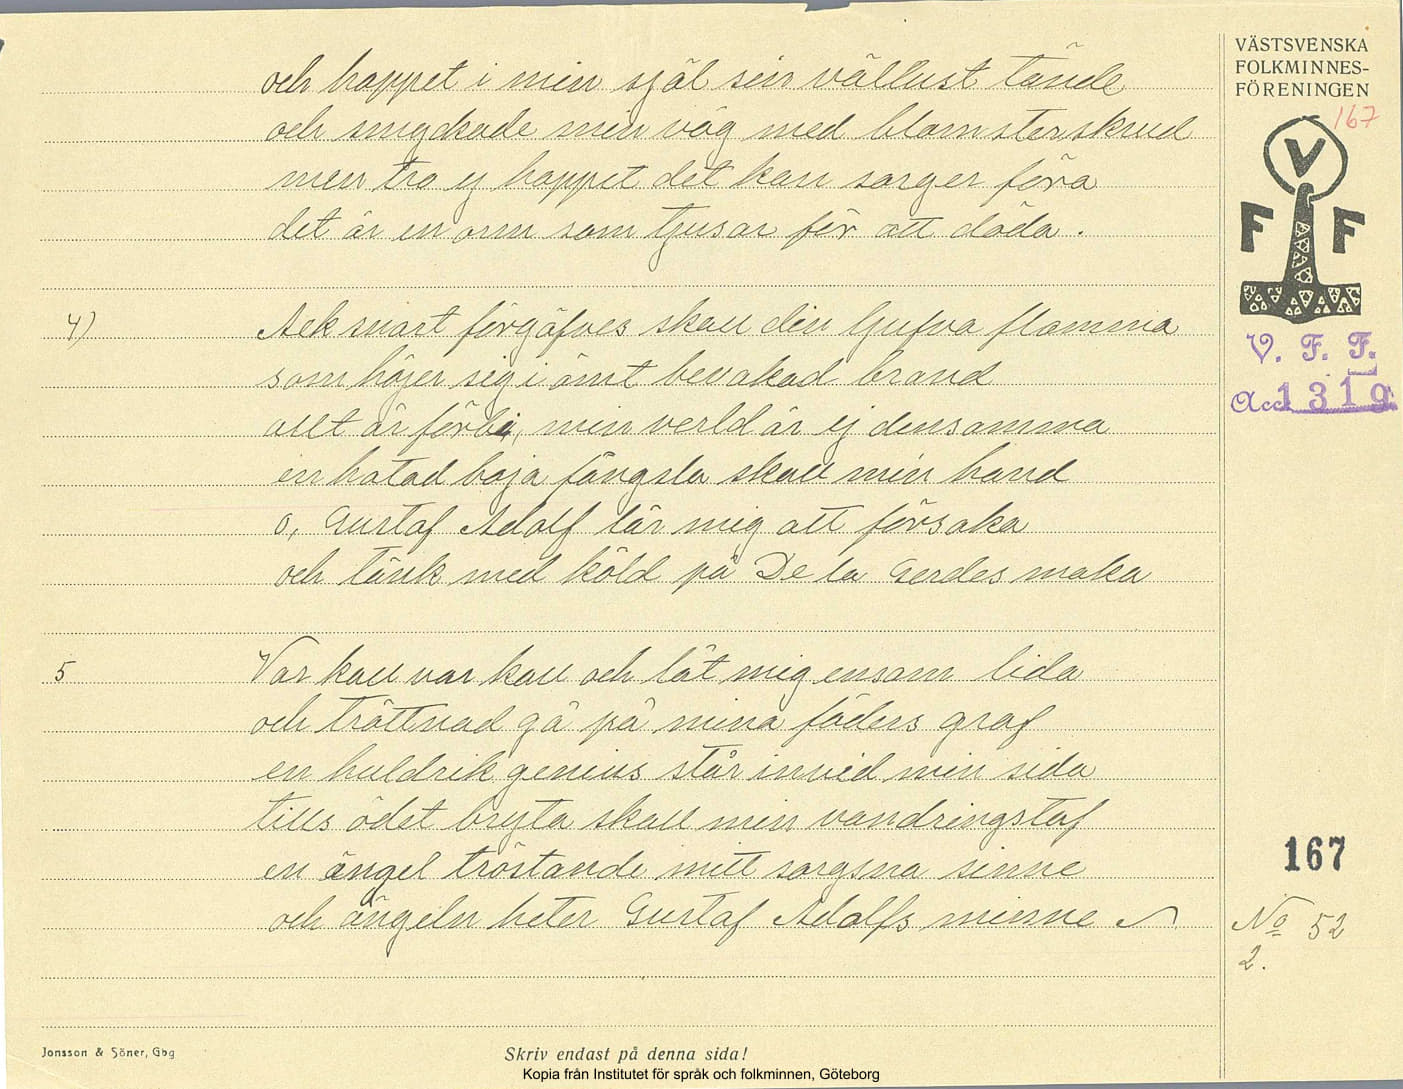 och hoppet i min själ sin vällust tände
och smyckade min väg med blomsterskrud
men tro ej hoppet det kan sorger föra
det är en orm som tjusar för att döda.
4) Ack snart förgäfves skall din ljufva flamma
som höjer sig i ömt bevakad brand
allt är förbi, min verld är ej densamma
en hatad boja fängsla skall min hand
o, Gustaf Adolf lär mig att försaka
och tänk med köld på De la Gerdes maka
5 Var kall var kall och låt mig ensam lida
och tröttnad gå på mina fäders graf
en huldrik genius står invid min sida
tills ödet bryta skall min vandringstaf
en ängel tröstande mitt sorgsna sinne
och ängeln heter Gustaf Adolfs minne
VÄSTSVENSKA
FOLKMINNES-
FÖRENINGEN
167
V
F F
V. F. F.
Acc 1319
167
No 52
2.
Jonsson & Söner, Gbg
Skriv endast på denna sida!
Kopia från Institutet för språk och folkminnen, Göteborg